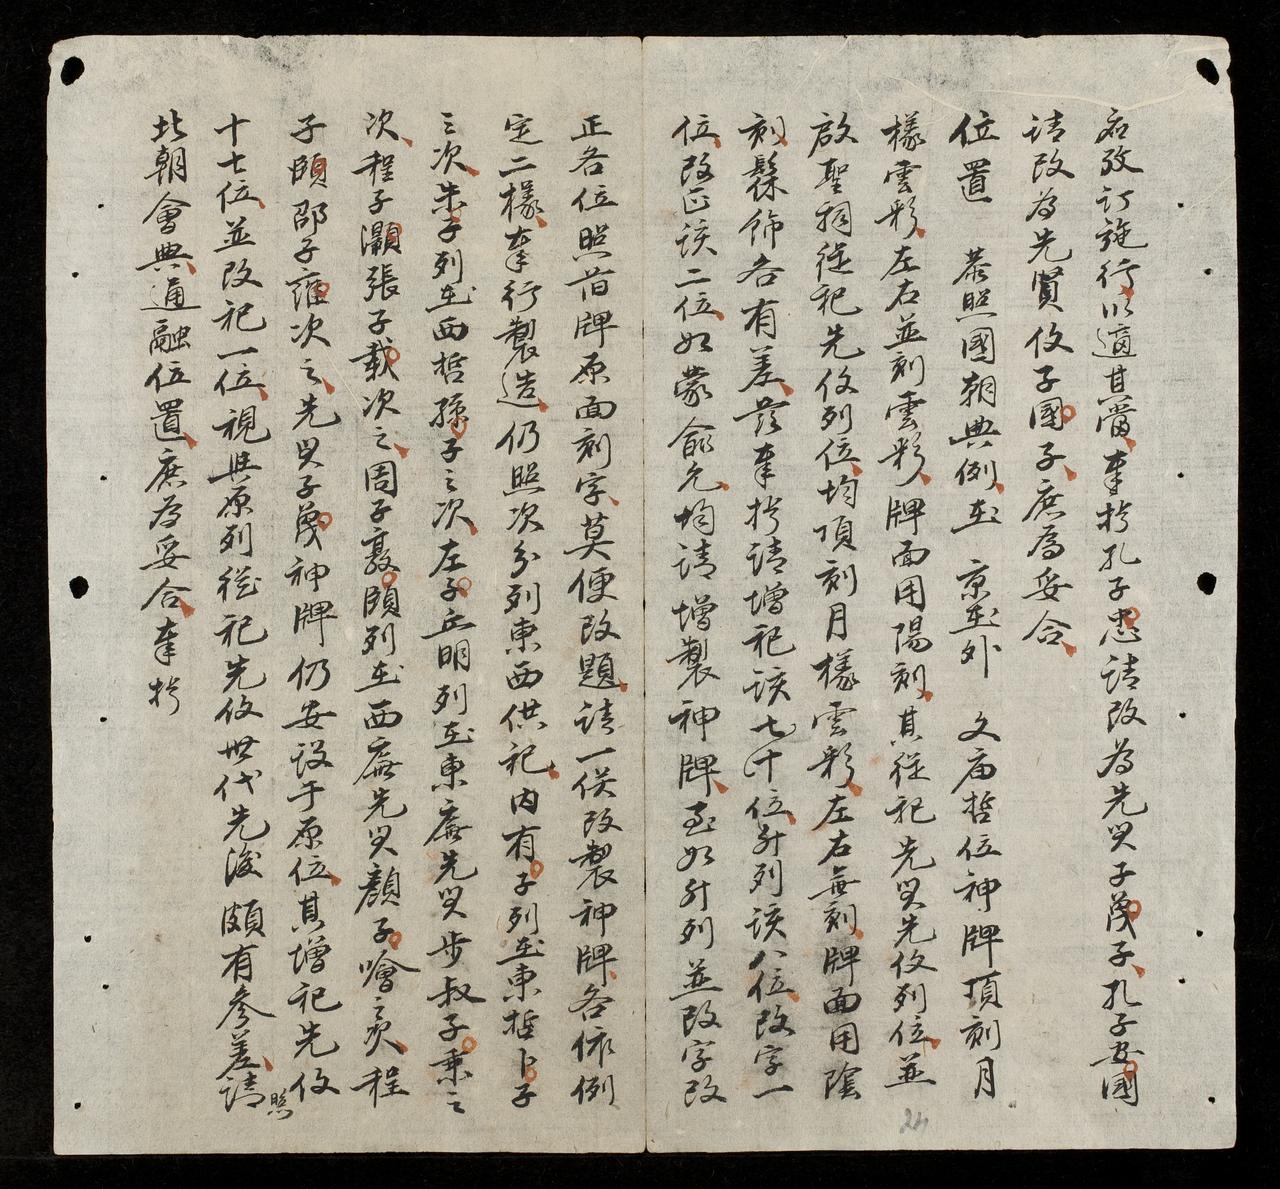 名攷訂施行以適其當奉於孔子忠請改為先賢子蔑子孔子安國
請改為先賢伐子國子庶為妥合
位置 恭照國朝典例在 京在外 文庙哲位神牌頂刻月
樣雲彩左右並刻雲彩牌面用陽刻其從祀先賢先伐列位並
啟聖祠從祀先伐列位均頂刻月樣雲彩左右無刻牌面用陰
刻髹飾各有差茲奉於請增祀該七十位升列該八位改字一
位改正該二位如蒙俞允均請增製神牌至如升列並改字改
正各位照苗牌原面刻字莫便改題請一併改製神牌各依例
定二樣奉行製造仍照次分列東西供祀內有子列在東哲卜子
之次朱子列在西哲孫子之次左子丘明列在東廡先賢步叔子乘之
次程子灝張子載次之周子敦頤列在西廡先賢顏子噲之次程
子頤邵子雍次之先賢子蔑神牌仍安設于原位其增祀先伐
十七位並改祀一位視與原列從祀先伐世代先後頗有參差請照
北朝會典通融位置庶為妥合奉於
24